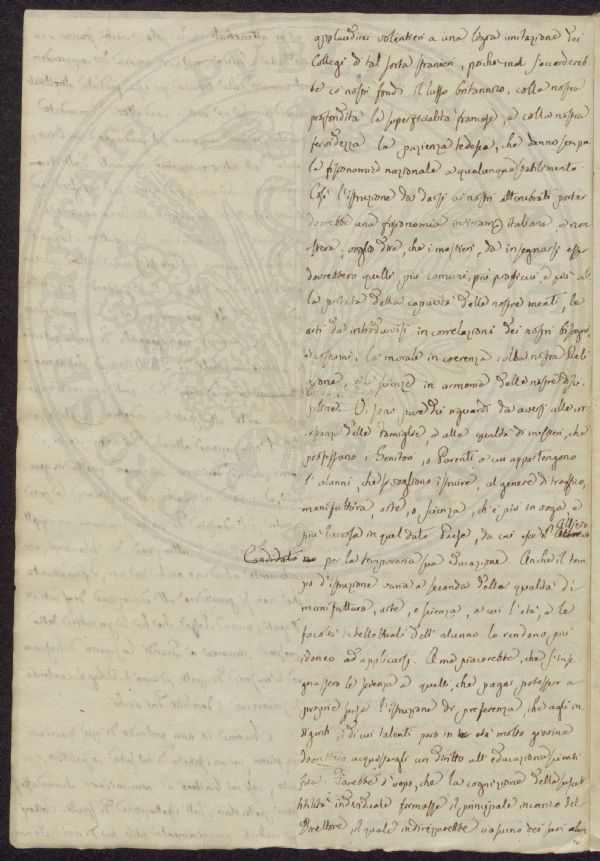 applaudirei volentieri a una ligia imitazione dei
Collegi di tal sorta stranieri, poichè mal s'accordereb-
be ai nostri fondi il lusso britannico, colla nostra
profondità la superficialità francese, e colla nostra
fervidezza la pazienza tedesca, che danno sempre
la fisionomia nazionale a qualunque stabilimento.
Così l'istruzione da darsi ai nostri attinenti portar
dovrebbe una fisionomia interamente italiana, e non
; voglio dire, che i mestieri, da insegnarsi esser
dovrebbero quelli più comuni, più proficui, e più al-
la portata della capacità delle nostre menti, le
arti da introdursi in correlazioni dei nostri bisogni,
e costumi, la morale in coerenza colla nostra Reli-
gione, e le scienze in armonia dalle nostre disci-
pline. Vi sono pure dei riguardi da aversi alle cir-
costanze delle famiglie, e alla qualità di mestieri, che
professano i Genitori, o Parenti a cui appartengono
l'alunni, che si vogliono istruire, al genere di traffico,
manifattura, arte, o scienza, ch'è più in voga, e
più lucrosa in quel dato Paese, da cui esce l' Allievo
Candidato per la temporaria sua educazione. Anche il tem-
po d'istruzione varia a seconda della qualità di
manifattura, arte, o scienza, a cui l'età, e le
facoltà intellettuali dell'alunno lo rendono più
idoneo ad applicarsi. A me piacerebbe, che s'inse-
gnassero le scienze a quelli, che pagar potessero a
proprie spese l'istruzione di preferenza, che agli in-
digenti, i di cui talenti, però in età molto giovine
dassero acquistargli un diritto all'educazione scienti-
fica. Farebbe d'uopo, che la cognizione della suscet-
tibilità individuale formasse il principale incarico del
Direttore, il quale indirizzarebbe ciascuno dei suoi alun-